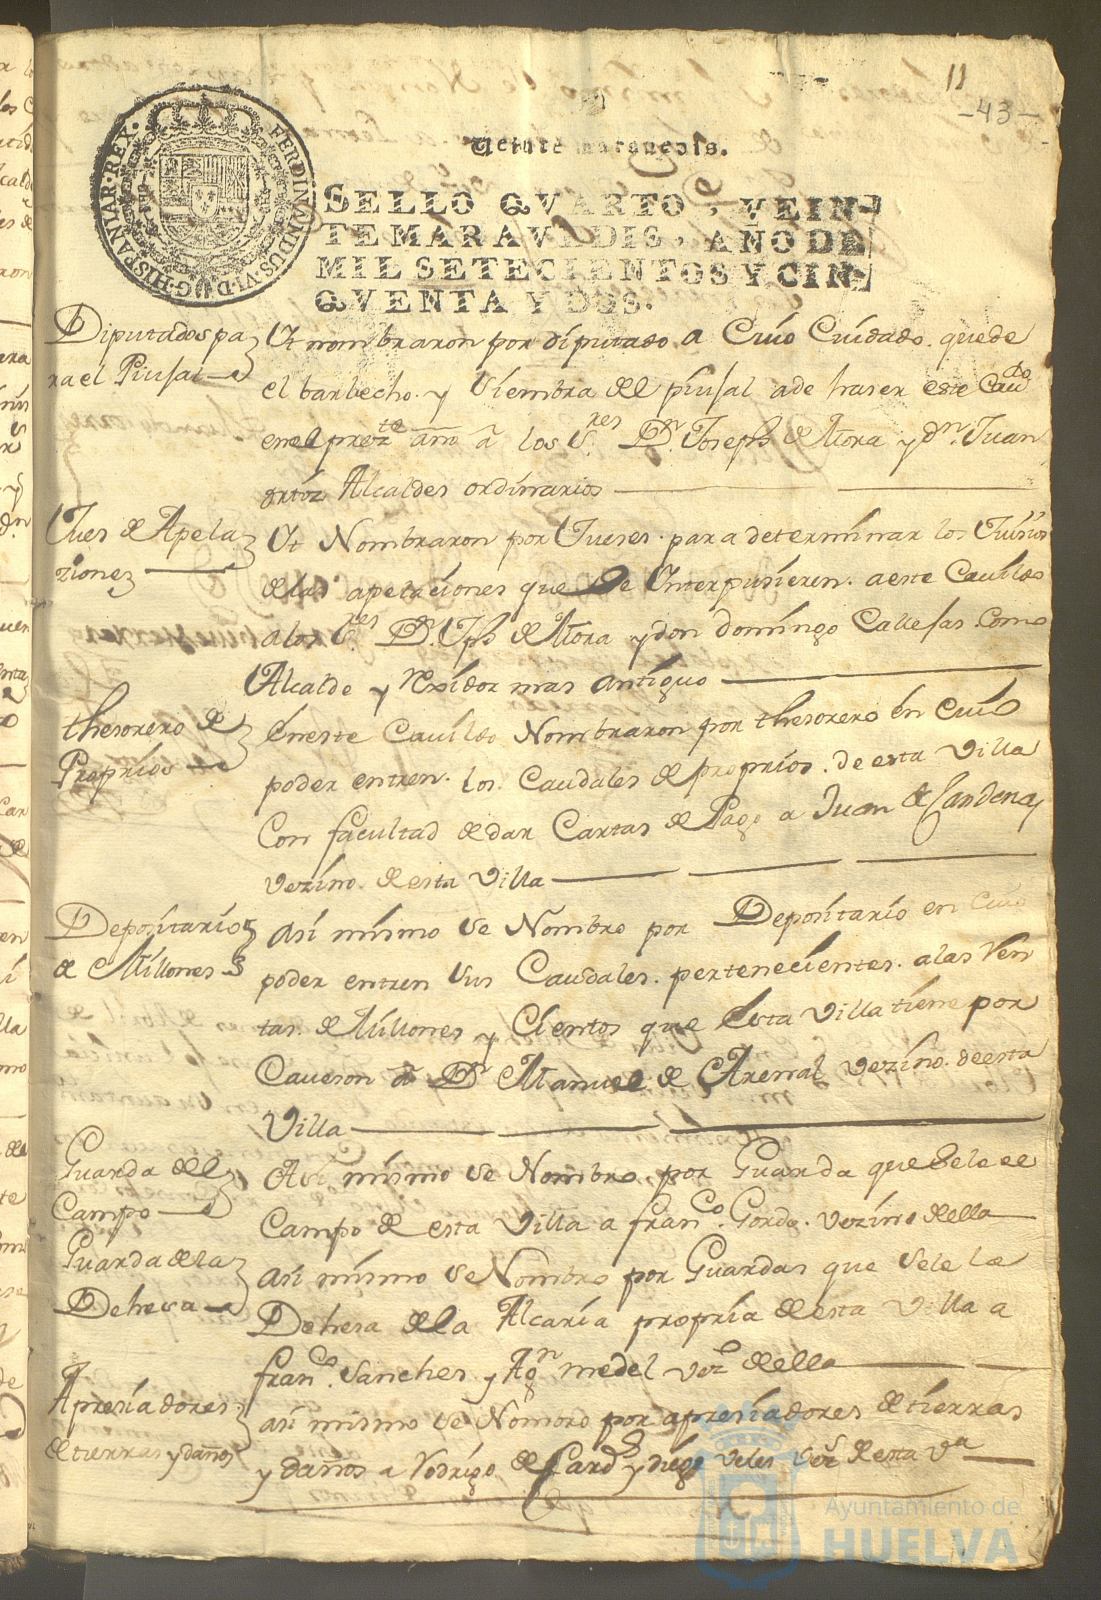 11
-43-
FERDINANDUS·VI·D·G·HISPANIAR·REX·
Veinte maravedis.
SELLO QVARTO, VEIN-
TE MARAVEDIS, AÑO DE
MIL SETECIENTOS Y CIN-
QVENTA Y DOS.
Diputados pa
ra el Piujal
Ut nombraron por diputado a Cuio Cuidado quede
el barbecho y Siembra del piujal a de haser este Cavdo
en el preste año a los Sres Dn Joseph de Mora y dn Juan
ortiz Alcaldes ordinarios
Jues de Apela
ziones
Ut Nombraron por Jueses para determinar los Juisios
de las apelaciones que Se Interpusieren a este Cauildo
a los Sres Dn Jph de Mora y don domingo Callejas Como
Alcalde y Rexidor mas antiguo
thesorero de
Proprios
En este Cauildo Nombraron por thesorero en Cuio
poder entren los Caudales de proprios de esta Villa
Con facultad de dar Cartas de Pago a Juan de Cardenas
vezino de esta Villa
Depositario
de Millones
Asi mismo se Nombro por Depositario en Cuio
poder entren Sus Caudales pertenecientes a las Ren
tas de Millones y Cientos que Esta Villa tiene por
Caueson a Dn Manuel de Arenal vezino de esta
Villa
Guarda del
Campo
Asi mismo se Nombro por Guarda que Sele el
Campo de esta Villa a franco Gordo vezino della
Guarda de la
Dehesa
Asi mismo se Nombro por Guardas que Sele la
Dehesa de la Alcaria propria de esta Villa a
franco Sanches y Agn medel vezo della
Apresiadores
de tierras y daños
asi mismo se Nombro por apresiadores de tierras
y daños a Rodrigo de Cards y diego Veles vezs de esta Va
Ayuntamiento de
HUELVA